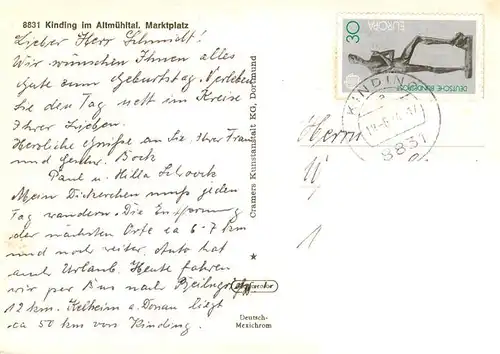 8831 Kinding im Altmühltal. Marktplatz
Lieber Herr Schmidt!
Wir wünschen Ihnen alles
Gute zum Geburtstag. Verleben
Sie den Tag nett im Kreise
Ihrer Lieben.
Herzliche Grüße an Sie, Ihre Frau
und Geschw. Bock
Paul u. Hilla
Mein Dickerchen muß jeden
Tag wandern. Die Entfernung
der nächsten Orte ca 6-7 km
und noch weiter. Auto hat
auch Urlaub. Heute fahren
wir per Bus nach Beilngries
12 km. Kelheim a. Donau liegt
ca 50 km von Kinding.
Cramers Kunstanstalt KG, Dortmund
Deutsch-
Mexichrom
30
EUROPA
DEUTSCHE BUNDESPOST
KINDING
8831
Herrn